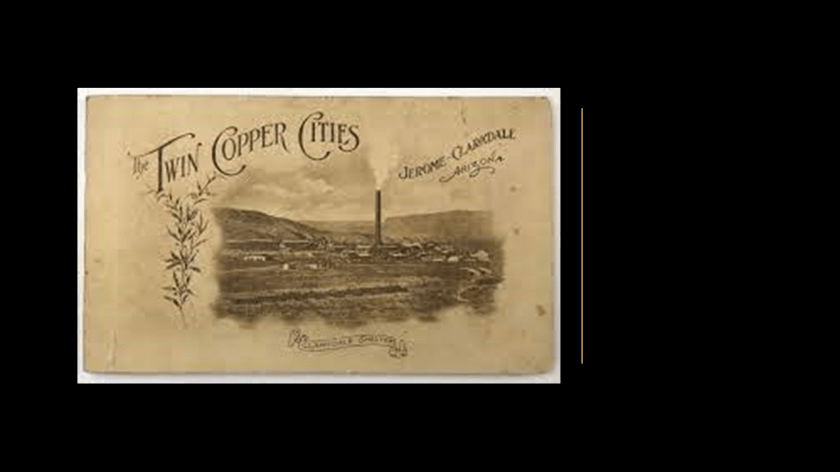 The TWIN COPPER CITIES
JEROME-CLARKDALE
ARIZONA
CLARKDALE SMELTER